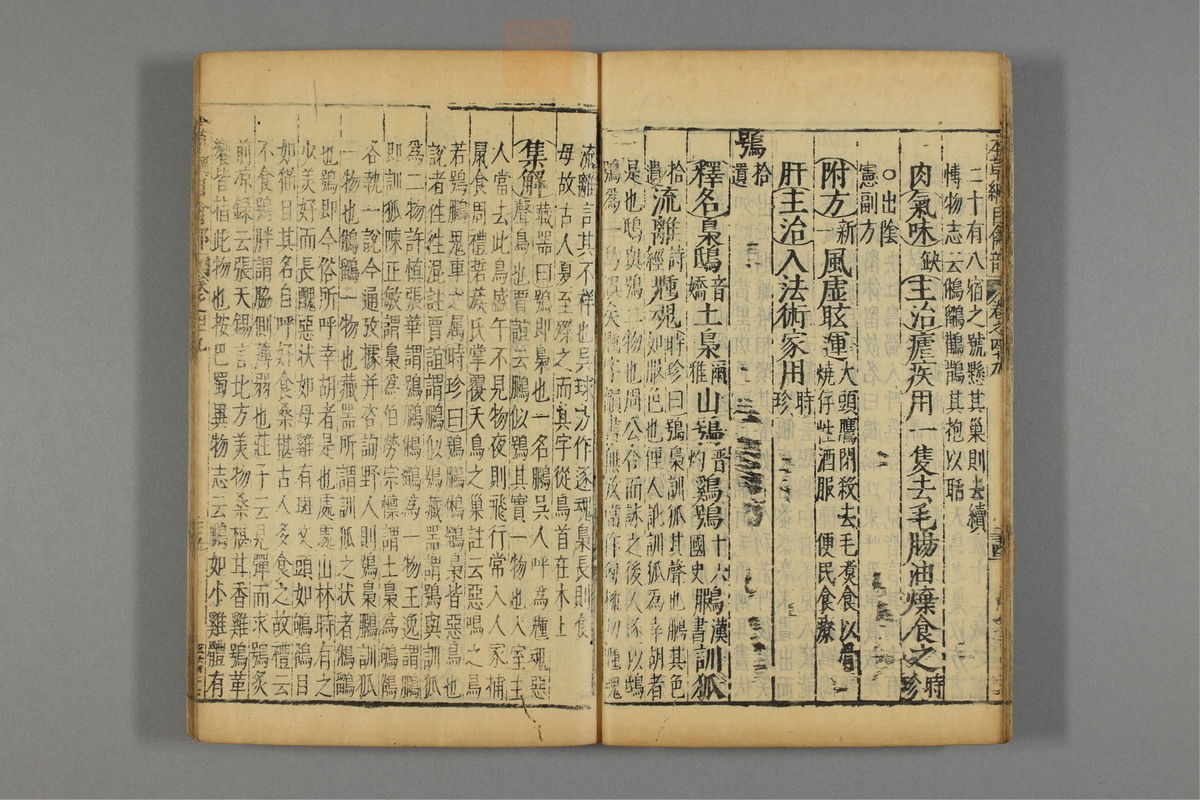 二十有八宿之號懸其巢則去續
博物志云鵂鶹鸛鵲其抱以聒
肉氣味缺主治瘧疾用一隻去毛腸油煠食之時珍
○出陰
憲副方
附方新一風虛眩運大頭鷹閉殺去毛煮食以骨
燒存性酒服 便民食療
肝主治入法術家用時珍
鴞拾遺
釋名梟鴟音嬌土梟爾雅山鴞晋灼鷄鴞十六國史鵩漢書訓狐
拾遺流離詩經䰡魂時珍曰鴞梟訓狐其聲也鵩其色
如服色也俚人訛訓狐為幸胡者
是也鴟與鴞二物也周公合而詠之後人遂以鴟
鴞為一鳥誤矣
流離言其不祥也吳球方作逐魂梟長則食
母故古人夏至磔之而其字從鳥首在木上
集解藏器曰鴞即梟也一名鵩吳人呼為䰡魂惡
聲鳥也賈誼云鵩似鴞其實一物也入室主
人當去此鳥盛午不見物夜則飛行常入人家捕
鼠食周禮硩蔟氏掌覆夭鳥之巢註云惡鳴之鳥
若鴞鵩鬼車之属時珍曰鴞鵩鵂鶹梟皆惡鳥也
說者往往混註賈誼謂鵩似鴞藏器謂鴞與訓狐
為二物許慎張華謂鴞鵩鵂鶹為一物王逸謂鵩
即訓狐陳正敏謂梟為伯勞宗懍謂土梟為鴝鵒
各執一說今通攷據并咨詢野人則鴞梟鵩訓狐
一物也鵂鶹一物也藏器所謂訓狐之状者鵂鶹
也鴞即今俗所呼幸胡者是也處處山林時有之
少美好而長醜惡状如母雞有斑文頭如鴝鵒目
如猫目其名自呼好食桑椹古人多食之故禮云
不食鴞胖謂脇側薄弱也莊子云見彈而求鴞炙
前凉録云張天錫言北方美物桑椹甘香雞鴞革
饗皆指此物也按巴蜀異物志云鵩如小雞體有